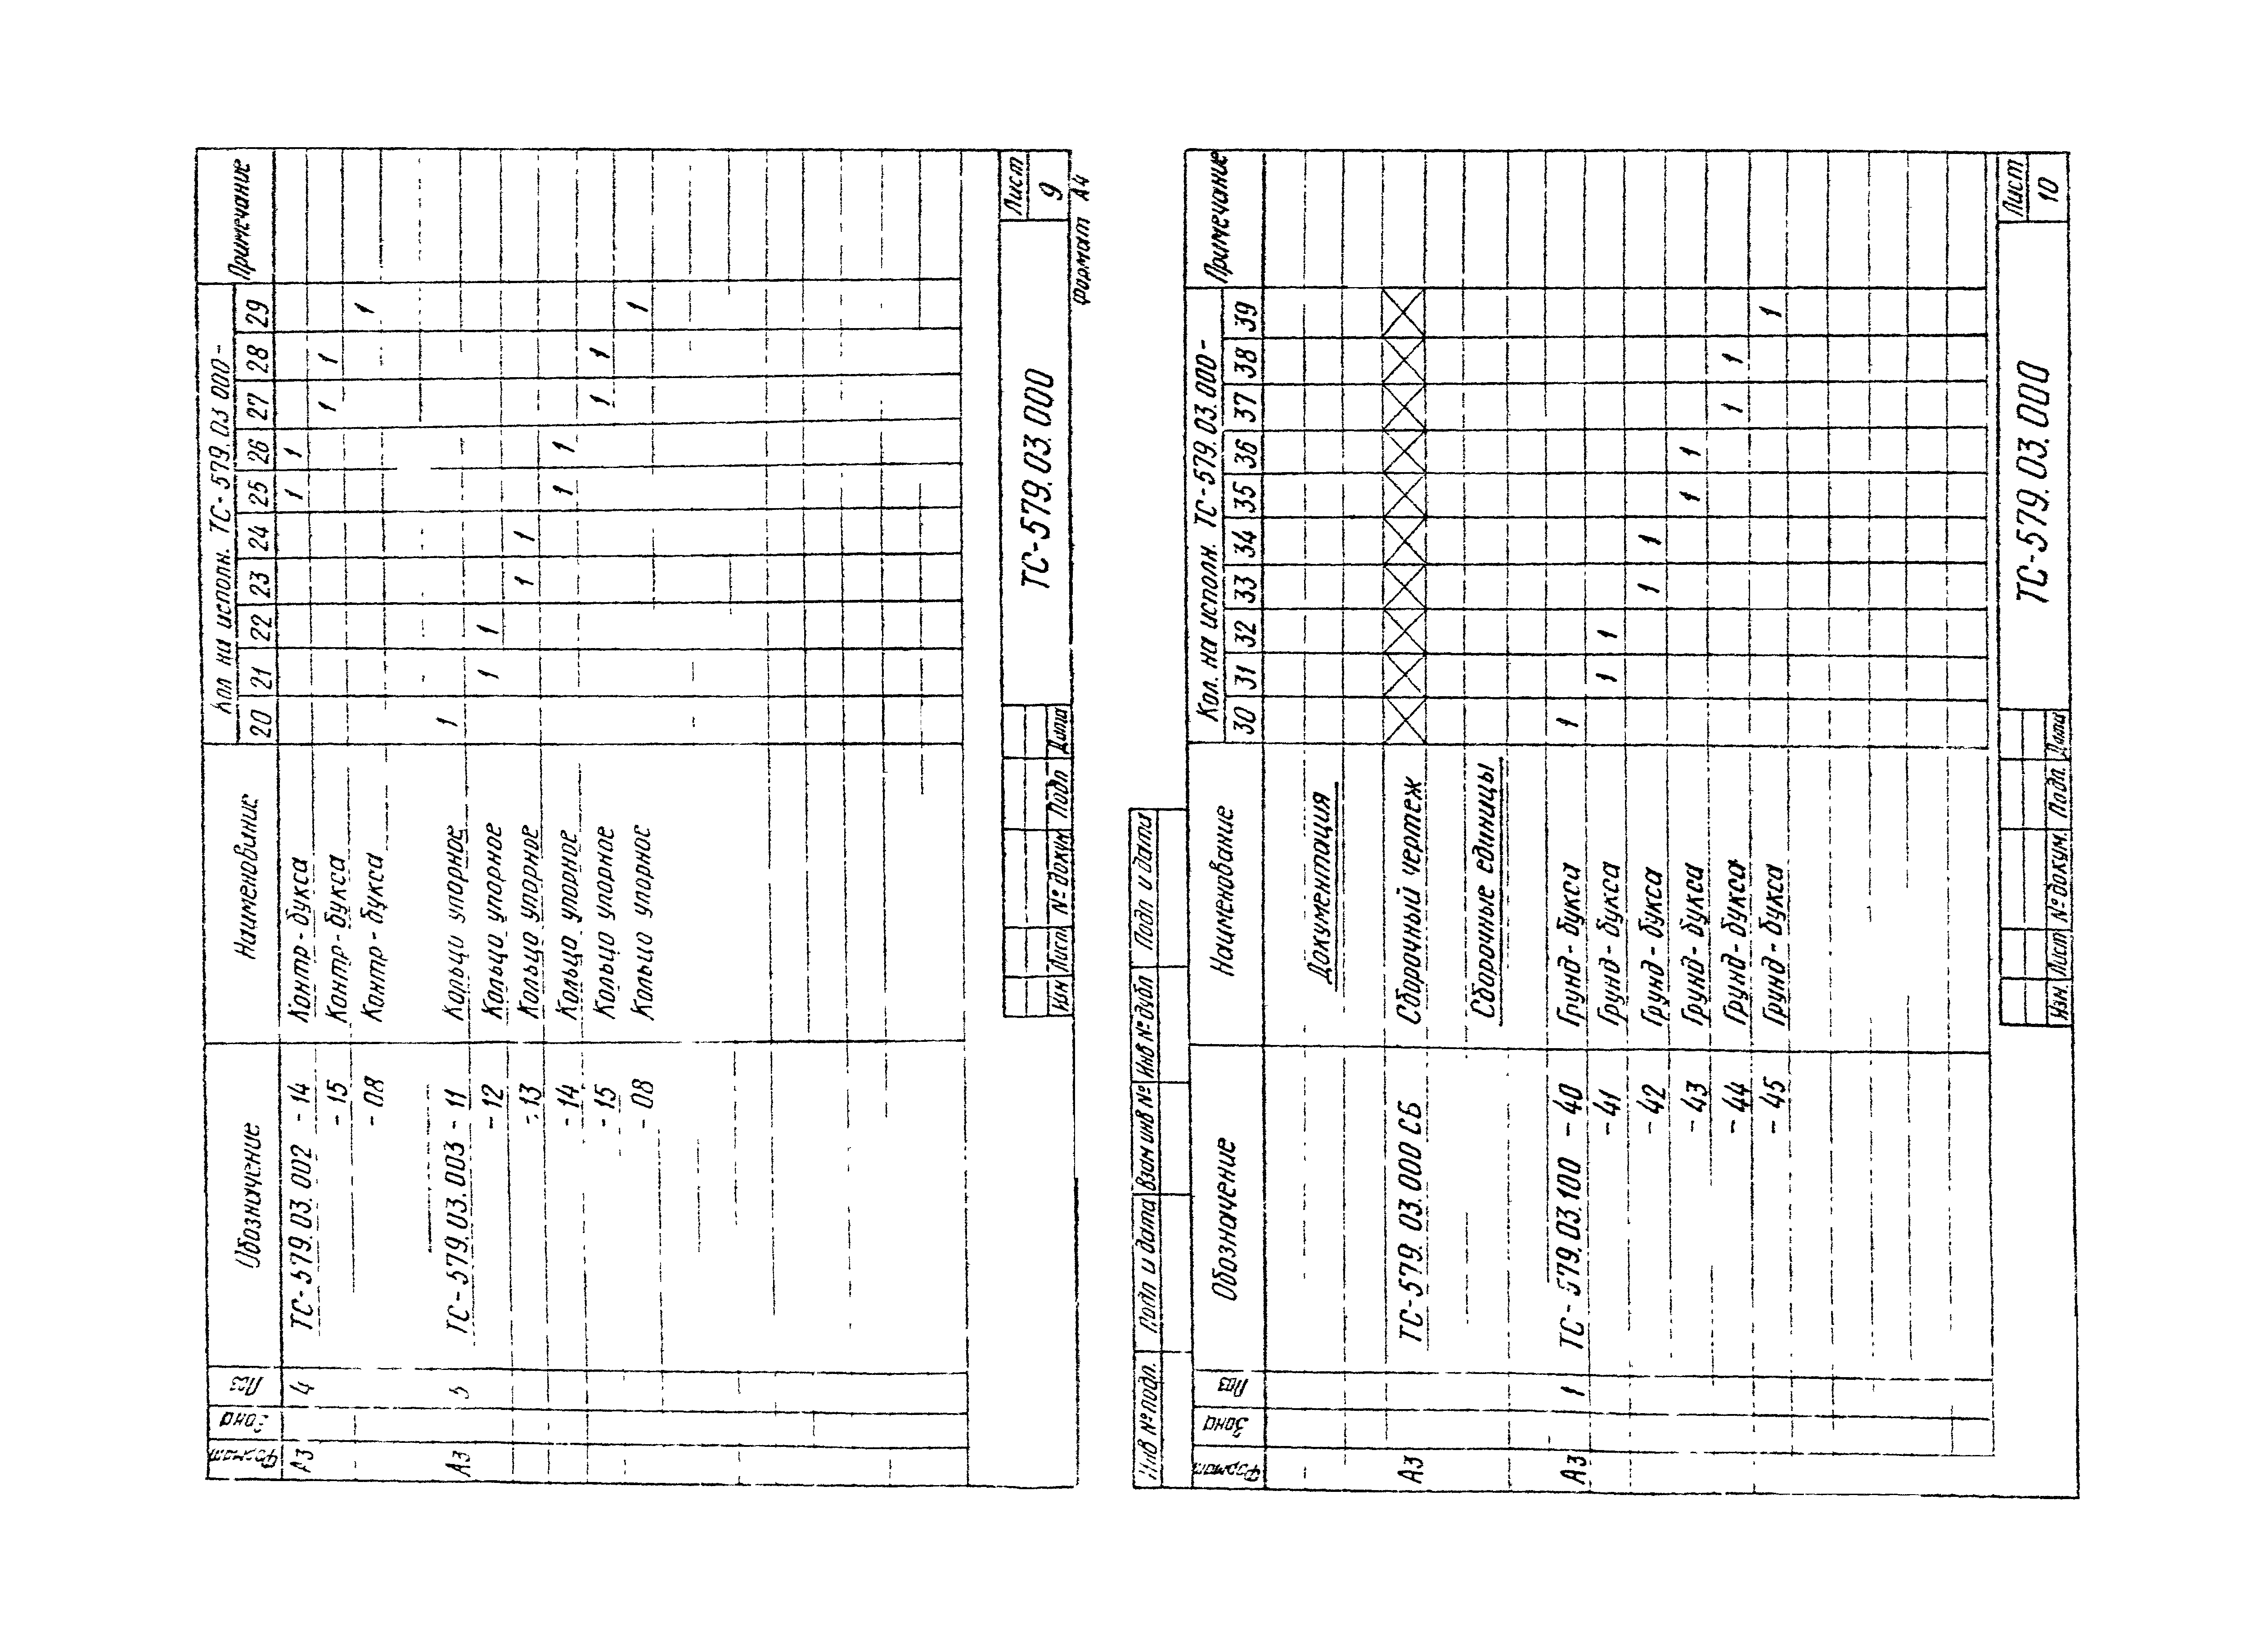 Формат Зона Поз Обозначение Наименование Кол на исполн. ТС-579.03 000- Примечание
20 21 22 23 24 25 26 27 28 29
А3 4 ТС-579.03.002 -14 Контр-букса 1 1
-15 Контр-букса 1 1
-08 Контр-букса 1
А3 5 ТС-579.03.003 -11 Кольцо упорное 1
-12 Кольцо упорное 1 1
-13 Кольцо упорное 1 1
-14 Кольцо упорное 1 1
-15 Кольцо упорное 1 1
-08 Кольцо упорное 1
Изм Лист №докум Подп Дата
ТС-579.03 000
Лист
9
Формат А4
Инв №подл. Подп и дата Взам инв № Инв № дубл Подп и дата
Формат Зона Поз Обозначение Наименование Кол. на исполн. ТС-579.03.000- Примечание
30 31 32 33 34 35 36 37 38 39
Документация
А3 ТС-579.03.000 СБ Сборочный чертеж
Сборочные единицы
А3 1 ТС-579.03.100 -40 Грунд-букса 1
-41 Грунд-букса 1 1
-42 Грунд-букса 1 1
-43 Грунд-букса 1 1
-44 Грунд-букса 1 1
-45 Грунд-букса 1
Изм Лист №докум. Подп. Дата
ТС-579.03.000
Лист
10